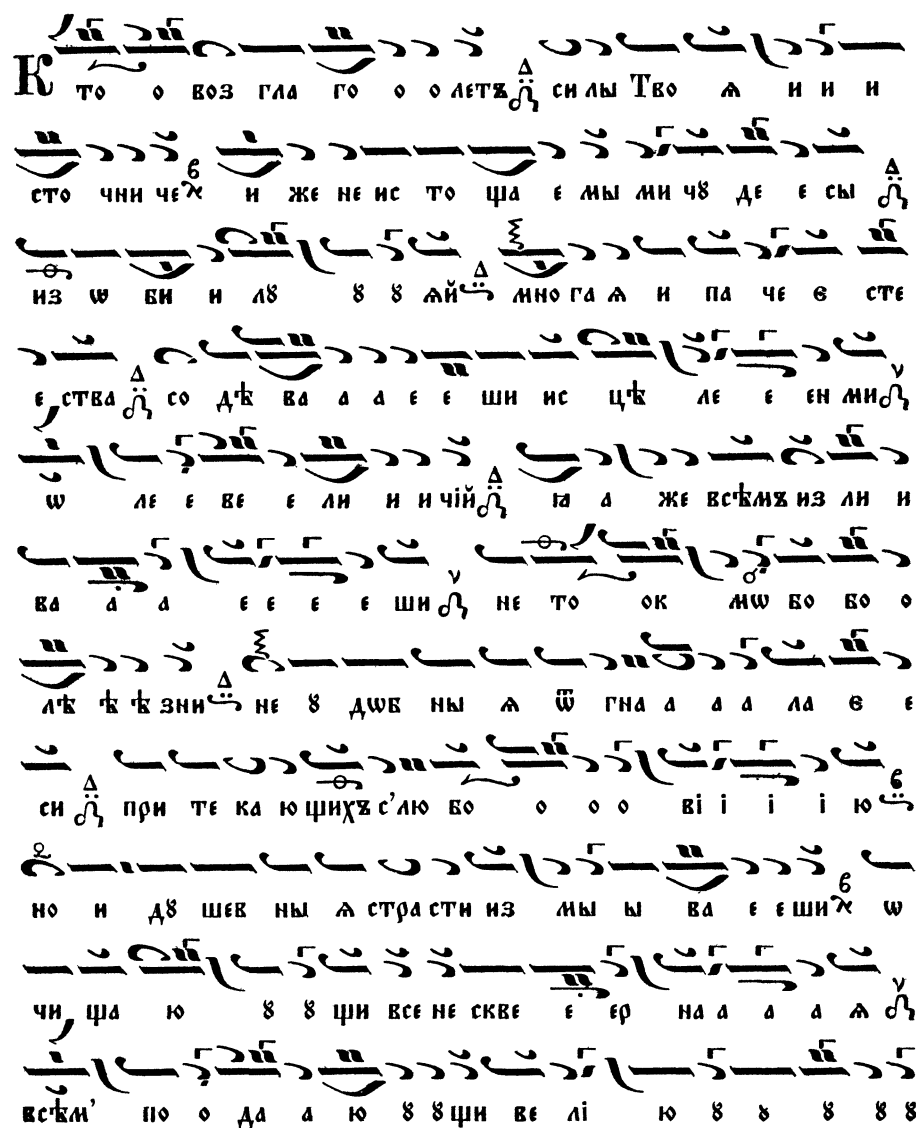 К то о воз гла го о о летъ си лы Тво ѧ и и и
сто чни че и же не ис то ща е мы ми чꙋ де е сы
из ѡ би и лꙋ ꙋ ꙋ ѧй мно га ѧ и па че є сте
е ства со дѣ ва а а е е ши ис цѣ ле е ен ми
ѡ ле е ве е ли и и чїй ꙗ а же всѣмъ из ли и
ва а а е е е е ши не то ок мѡ бо бо о
лѣ ѣ ѣ зни не ꙋ дѡб ны ѧ ѿ гна а а а ла є е
си при те ка ю щихъ с’лю бо о о о ві і і і ю
но и дꙋ шев ны ѧ стра сти из мы ы ва е е ши ѡ
чи ща ю ꙋ ꙋ щи все не скве е ер на а а а ѧ
всѣм’ по о да а ю ꙋ ꙋ щи ве лі ю ꙋ ꙋ ꙋ ꙋ ꙋ